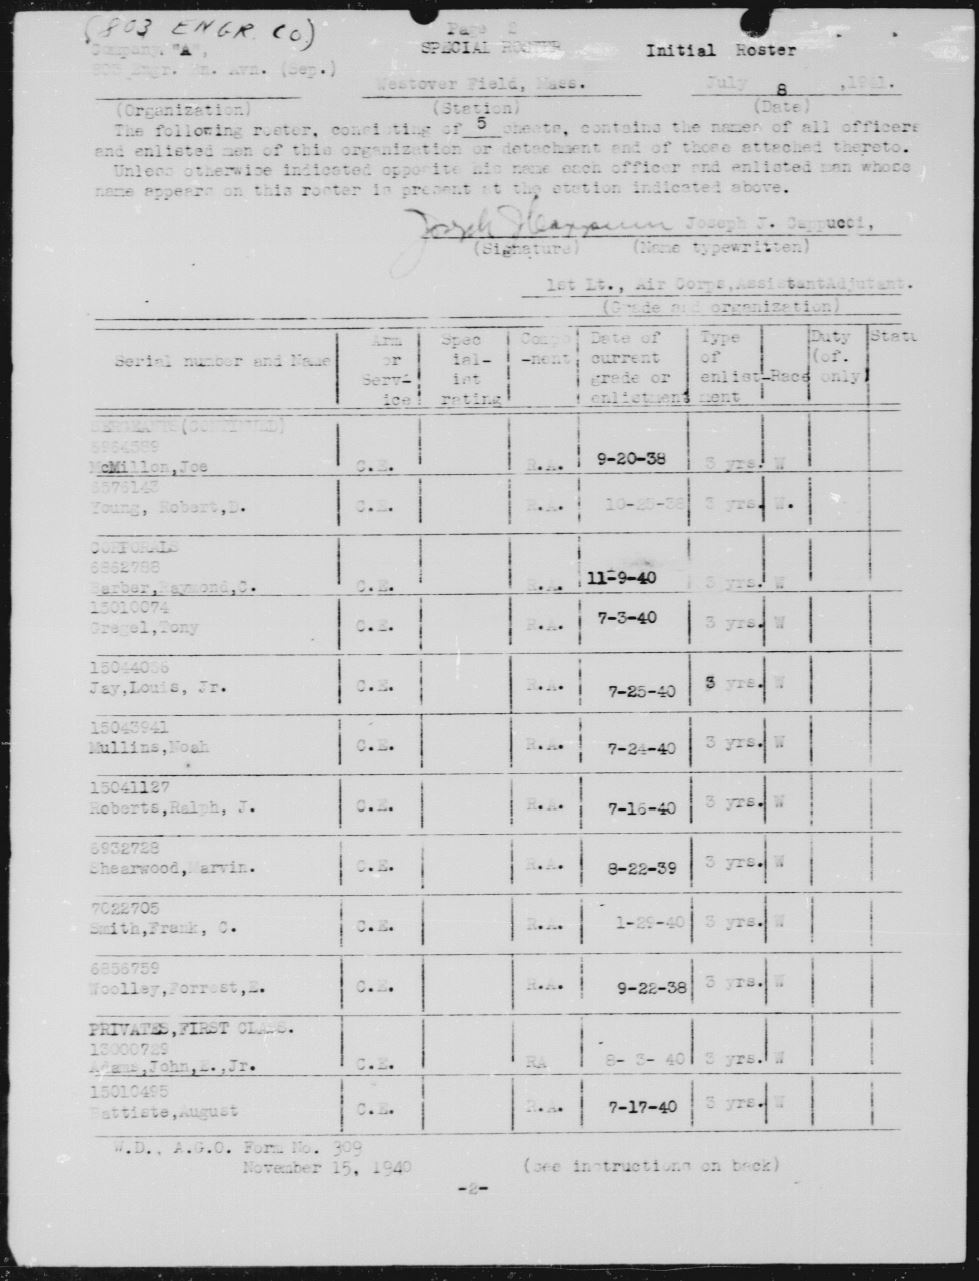 (803 ENGR. CO)
Page 2
Company "A", SPECIAL ROSTER Initial Roster
803 Engr. Bn. Avn. (Sep.)
Westover Field, Mass. July 8, 1941.
(Organization) (Station) (Date)
The following roster, consisting of 5 sheets, contains the names of all officers
and enlisted men of this organization or detachment and of those attached thereto.
Unless otherwise indicated opposite his name each officer and enlisted man whose
name appears on this roster is present at the station indicated above.
Joseph J. Cappucci Joseph J. Cappucci,
(Signature) (Name typewritten)
1st Lt., Air Corps,AssistantAdjutant.
(Grade and organization)
Arm Spec Compo Date of Type Duty Statu
Serial number and Name or ial- -nent current of (of.
Serv- ist grade or enlist-Race only)
ice rating enlistment ment
SERGEANTS(CONTINUED)
6964589
McMillon,Joe C.E. R.A. 9-20-38 3 yrs. W
6576143
Young, Robert,D. C.E. R.A. 10-25-38 3 yrs. W.
CORPORALS
6862788
Barber,Raymond,C. C.E. R.A. 11-9-40 3 yrs. W
15010074
Gregel,Tony C.E. R.A. 7-3-40 3 yrs. W
15044036
Jay,Louis, Jr. C.E. R.A. 7-25-40 3 yrs. W
15043941
Mullins,Noah C.E. R.A. 7-24-40 3 yrs. W
15041127
Roberts,Ralph, J. C.E. R.A. 7-16-40 3 yrs. W
6932728
Shearwood,Marvin. C.E. R.A. 8-22-39 3 yrs. W
7022705
Smith,Frank, C. C.E. R.A. 1-29-40 3 yrs. W
6856759
Woolley,Forrest,E. C.E. R.A. 9-22-38 3 yrs. W
PRIVATES,FIRST CLASS.
13000729
Adams,John,E.,Jr. C.E. RA 8- 3- 40 3 yrs. W
15010495
Battiste,August C.E. R.A. 7-17-40 3 yrs. W
W.D., A.G.O. Form No. 309
November 15, 1940 (see instructions on back)
-2-